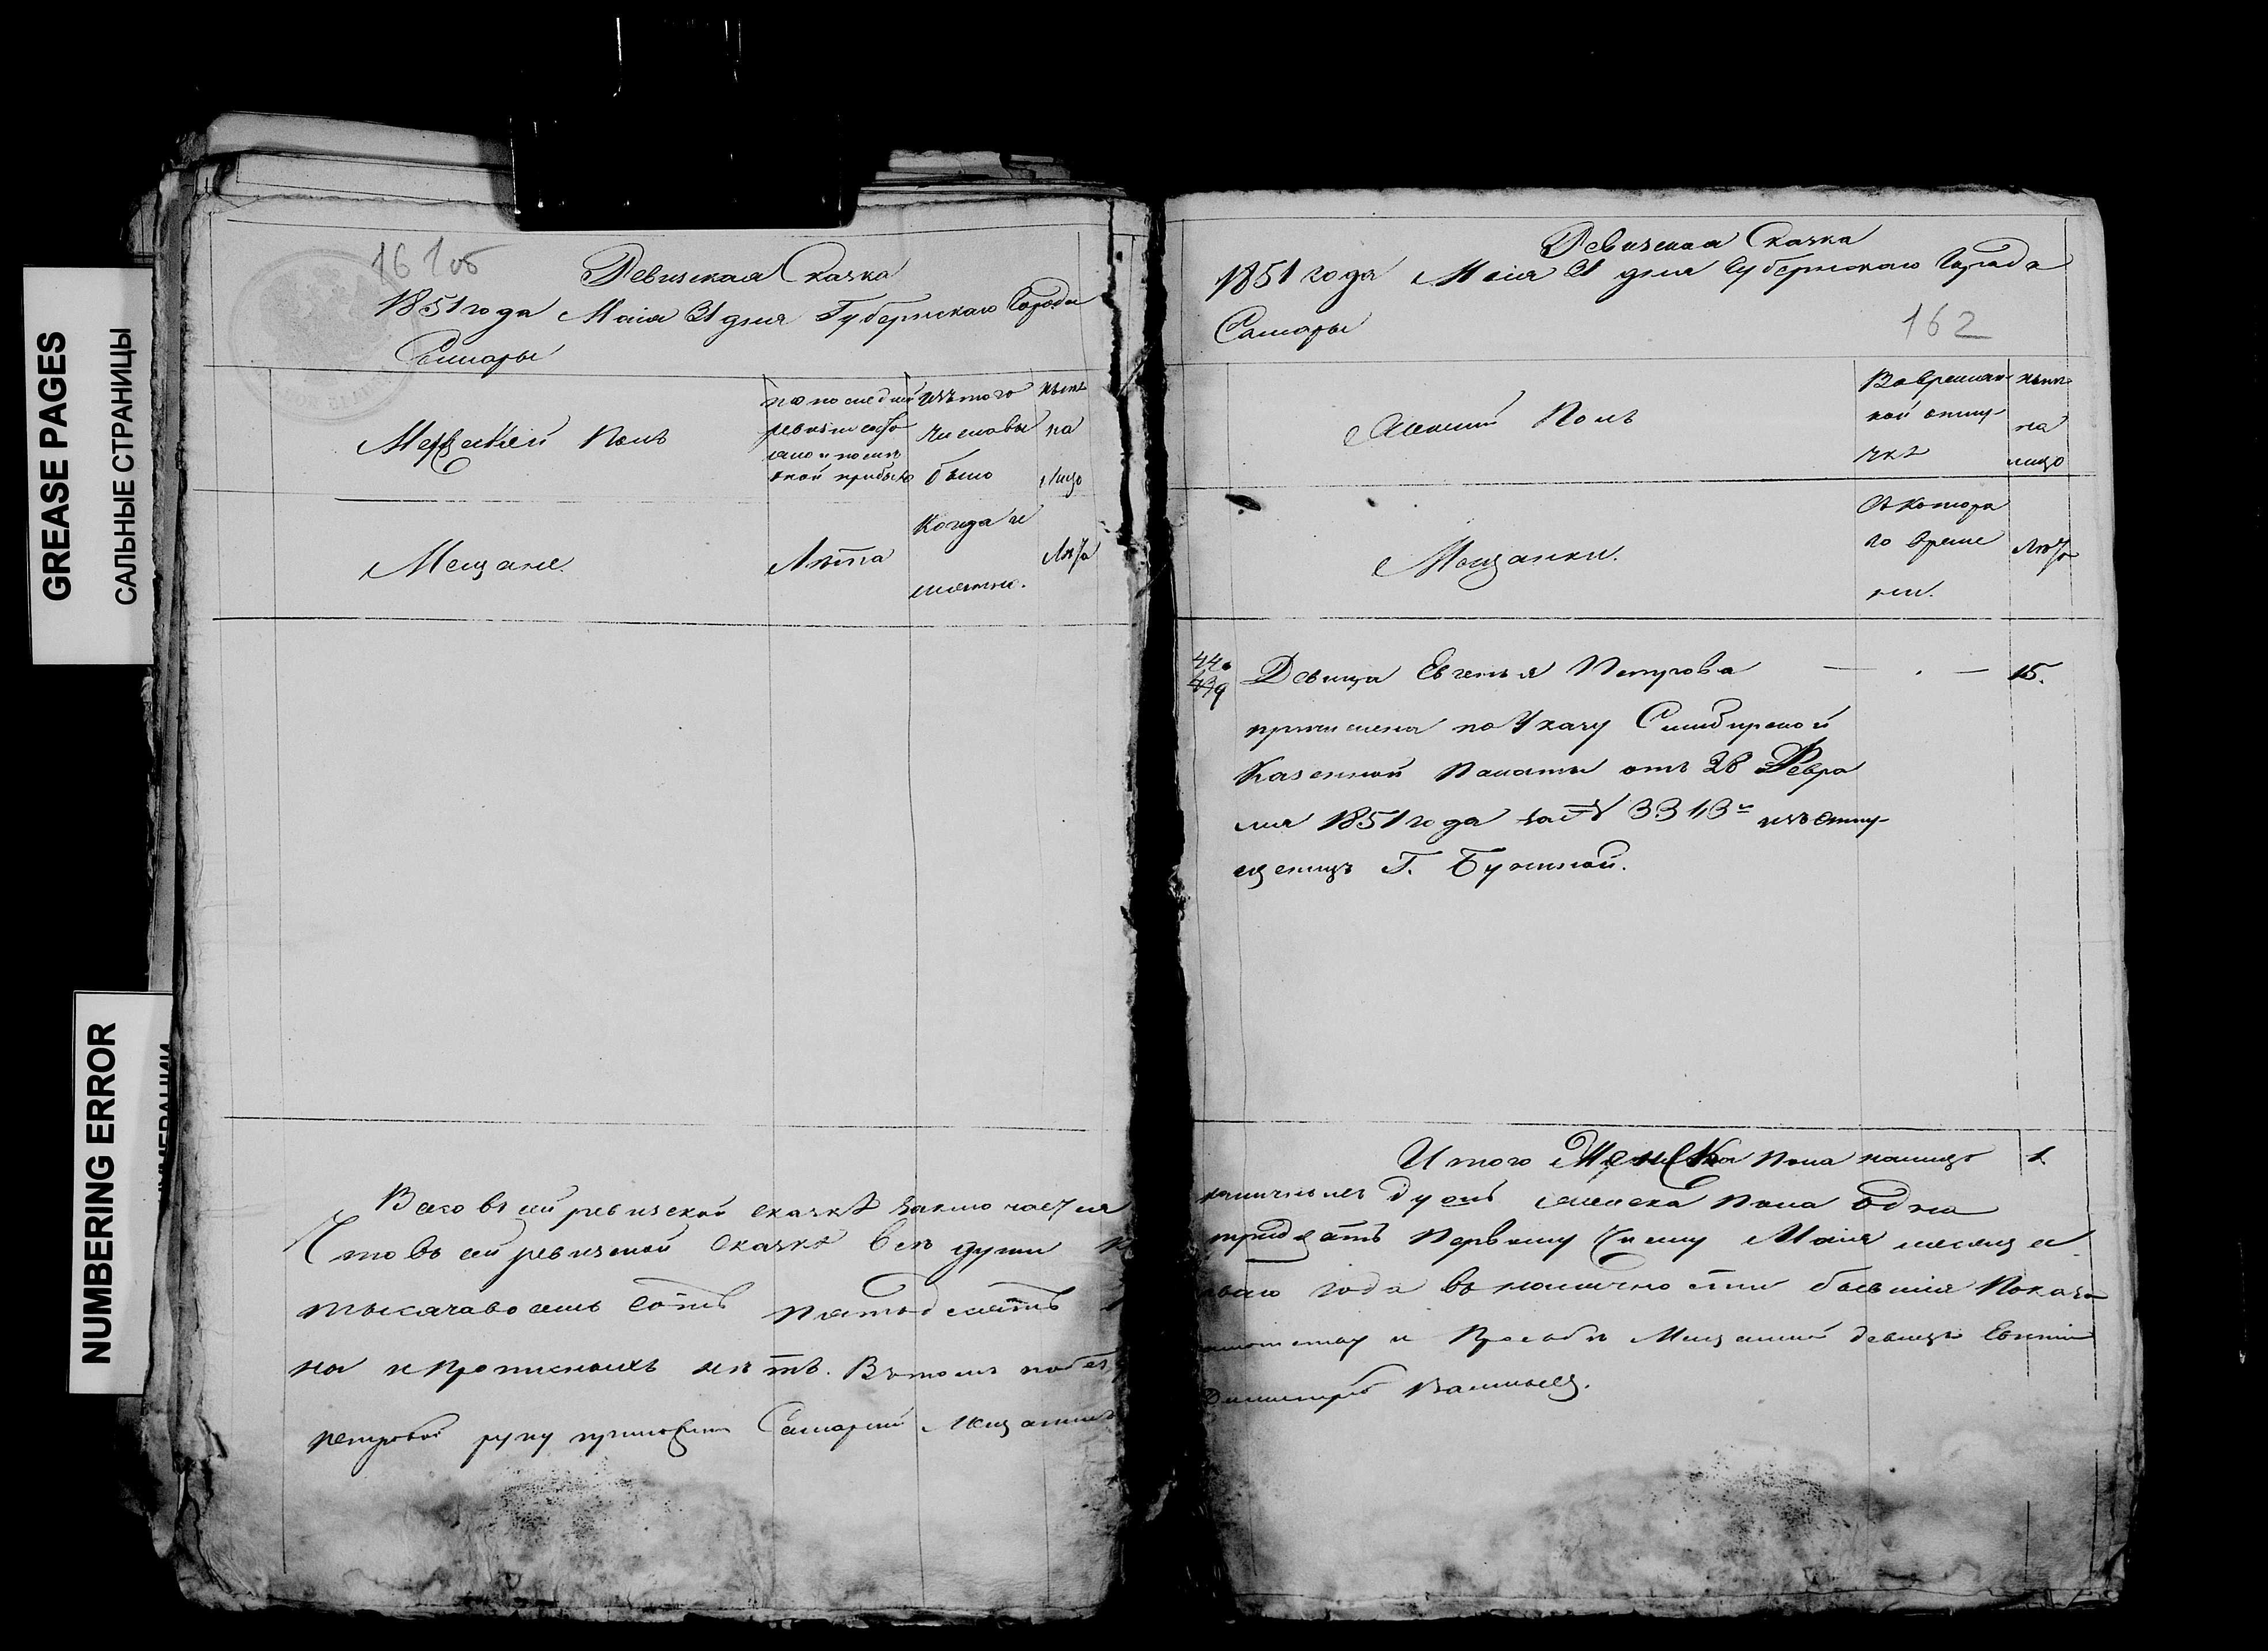 GREASE PAGES
САЛЬНЫЕ СТРАНИЦЫ
NUMBERING ERROR
161об
Ревизская Сказка
1851 года Маія 31 дня Губернскаго Города
Самары
Мужеский Полъ
по последней
ревизіи состо
яло и после
оной прибыло
изъ того
числа вы
было
ныне
на
лицо
Мещане.
Лѣта
Когда и
имянно.
Лѣта
Всего въ сей ревизской сказкѣ заключается
Что въ сей ревизской Сказкѣ все души
тысяча восемь сотъ пятьдесятъ
на и прописныхъ нѣтъ. Въ томъ
Петровой руку приложилъ Самарский Мещанинъ
Ревизская Сказка
1851 года Маія 31 дня Губернскаго Города
Самары
162
Женский Полъ
Во времян
ной отлу
чкѣ
ныне
на
лицо
Мещанки.
Съ котора
го време
ни.
Лѣта
440
439
Девица Евгенья Петрова — . — 15.
причислена по Указу Симбирской
Казенной Палаты отъ 28 Февра
ля 1851 года за № 3313 изъ отпу
щеницъ Г.
Итого Женска пола налицо 1
наличныхъ душъ женска пола одна
тридцать Первому числу Маія месяца
года въ наличности бывшія Показа
и Прозьбѣ Мещанской девицы Евгеніи
Васильевъ.